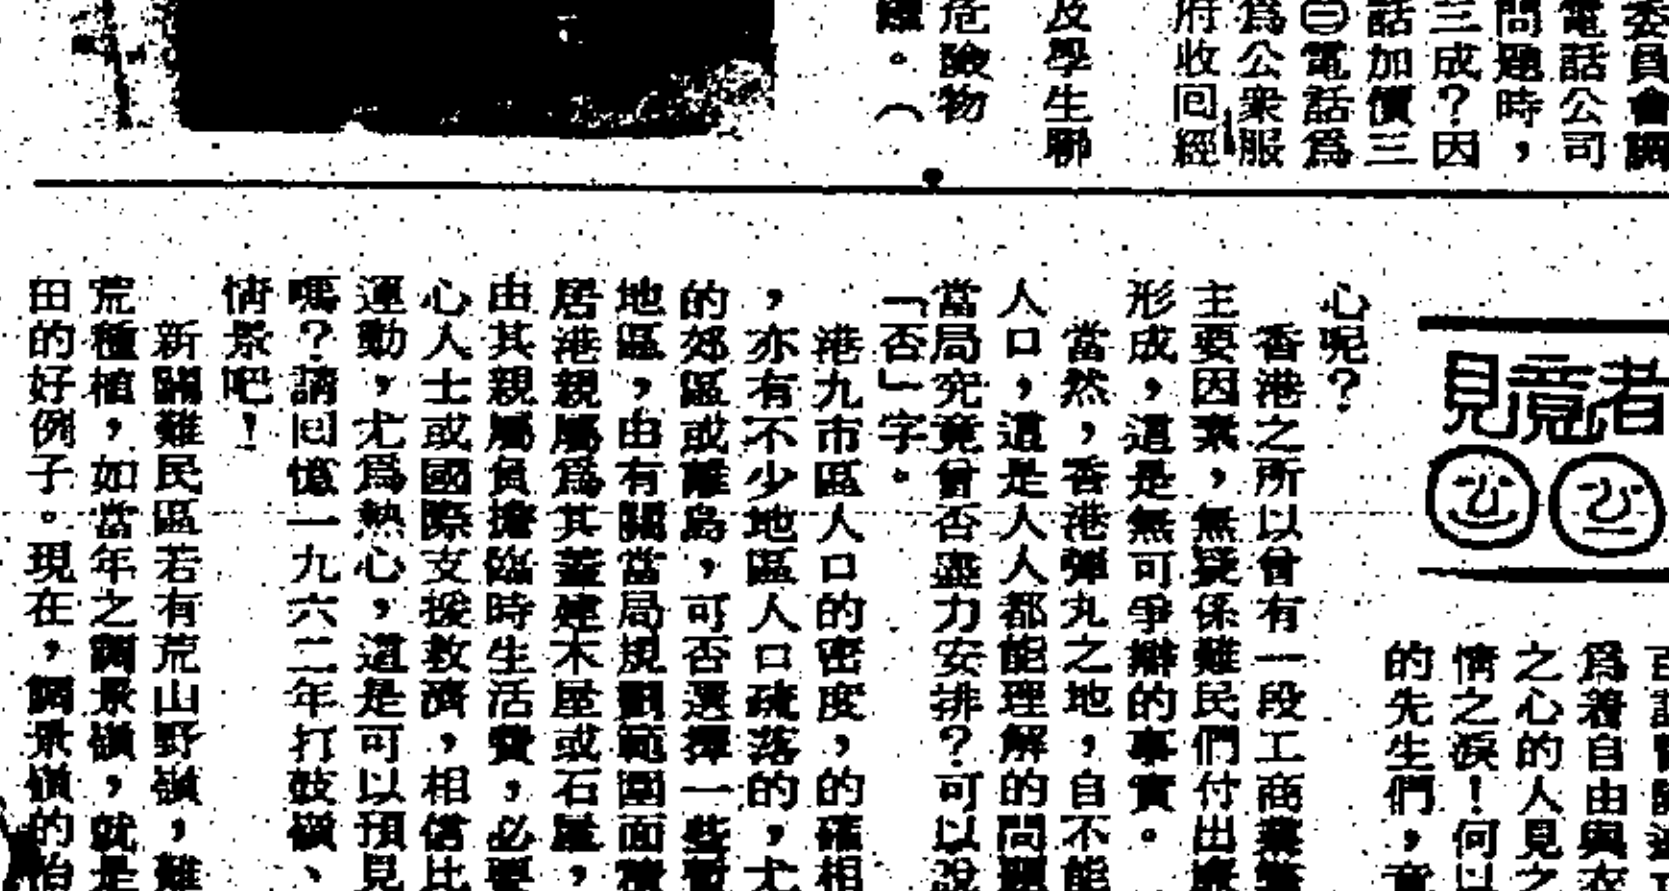 委員會調
電話公司
問題時，
三成？因
話加價三
電話爲
爲公衆服
府收回經
及學生聯
危險物
。（
者意見
爲着自由與衣
之心的人見之
情之淚！何以
的先生們，
心呢？
香港之所以曾有一段工商業繁
主要因素，無疑係難民們付出廉
形成，這是無可爭辯的事實。
當然，香港彈丸之地，自不能
人口，這是人人都能理解的問題
當局究竟曾否盡力安排？可以說
「否」字。
港九市區人口的密度，的確相
，亦有不少地區人口疏落的，尤
的郊區或離島，可否選擇一些暫
地區，由有關當局規劃範圍面積
居港親屬爲其蓋建木屋或石屋，
由其親屬負擔臨時生活費，必要
心人士或國際支援救濟，相信比
運動，尤爲熱心，這是可以預見
嗎？請回憶一九六二年打鼓嶺、
情景吧！
新闢難民區若有荒山野嶺，難
荒種植，如當年之調景嶺，就是
田的好例子。現在，調景嶺的